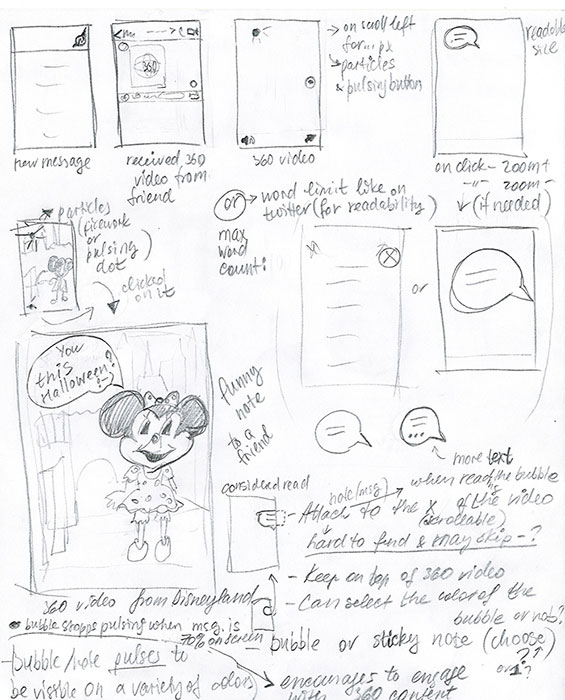 360
new message
received 360
video from
friend
360 video
→ on scroll left
for... px
particles
& pulsing button
readable
size
on click – 200m +
–"– 200m –
(if needed)
particles
(firework
or
pulsing
dot)
clicked
on it
or → word limit like on
twitter (for readability)
max
word
count!
or
You
this
Halloween?
:-)
funny
note
to a
friend
360 video from Disneyland
more text
considered read
note (msg)
when read the bubble
- Attach to the X of the video
(scrollable)
hard to find & may skip - ?
- Keep on top of 360 video
- Can select the color of the
bubble or not?
• bubble stopps pulsing when msg. is
70% on screen
- bubble or sticky note (choose)
or 1?
- bubble/note pulses to
be visible on a variety of colors)
encourages to engage
with 360 content